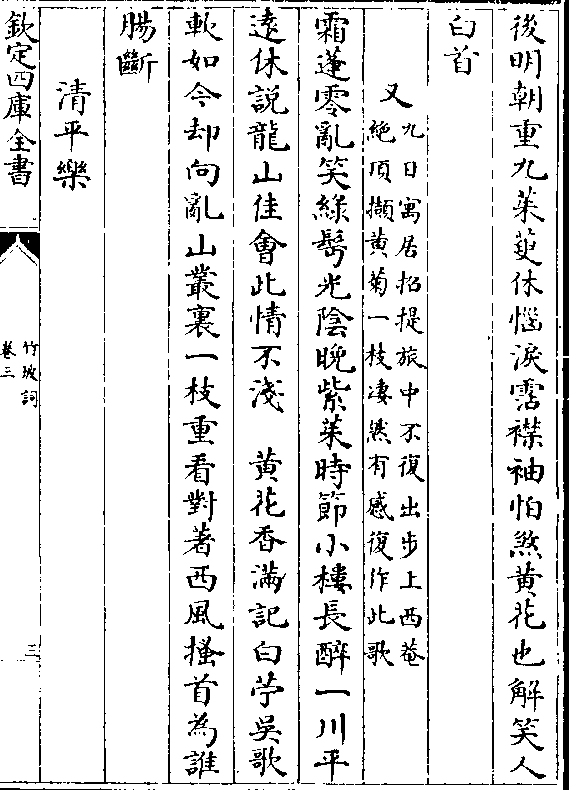 後明朝重九茱萸休惱淚霑襟袖怕煞黄花也解笑人
白首
又九日寓居招提旅中不復出步上西菴
絶頂擷黄菊一枝凄然有感復作此歌
霜蓬零亂笑緑鬢光陰晚紫茱時節小樓長醉一川平
逺休説龍山佳會此情不淺　黄花香滿記白苧吳歌
軟如今却向亂山叢裏一枝重看對著西風搔首為誰
腸斷
清平樂
欽定四庫全書
竹坡詞
卷三
三